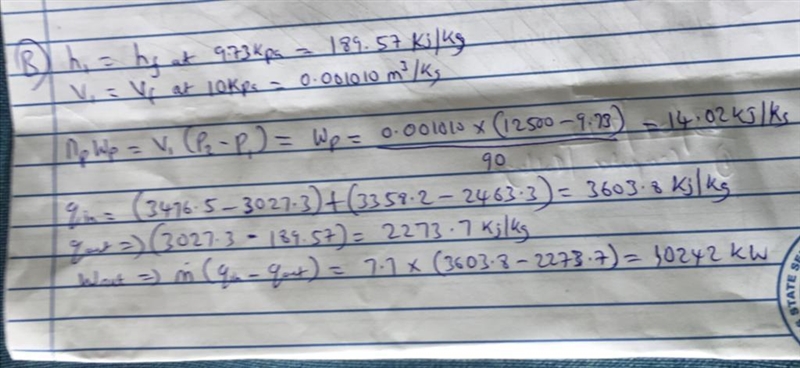 (B) h₁ = hf at 9.73Kpa = 189.57 Kj/kg
V₁ = Vf at 10Kpa = 0.001010 m³/Kg
ηpWp = V₁(P₂-P₁) = Wp = 0.001010 x (12500 - 9.73) / 90 = 14.02 KJ/Kg
qin = (3476.5 - 3027.3) + (3358.2 - 2463.3) = 3603.8 Kj/kg
qout => (3027.3 - 189.57) = 2273.7 Kj/kg
Wnet => ṁ (qin - qout) = 7.7 x (3603.8 - 2273.7) = 10242 KW
STATE SE